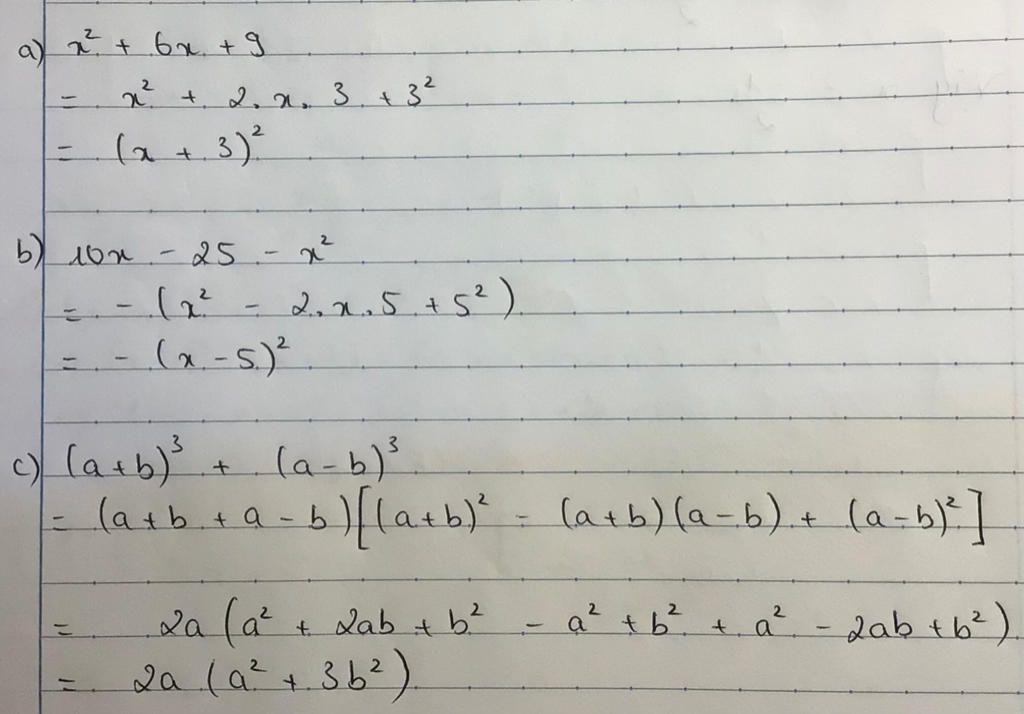 a) x² + 6x + 9
= x² + 2.x.3 + 3²
= (x + 3)²
b) 10x - 25 - x²
= - (x² - 2.x.5 + 5²)
= - (x - 5)²
c) (a+b)³ + (a-b)³
= (a+b+a-b)[(a+b)² - (a+b)(a-b) + (a-b)²]
= 2a (a² + 2ab + b² - a² + b² + a² - 2ab + b²)
= 2a (a² + 3b²)